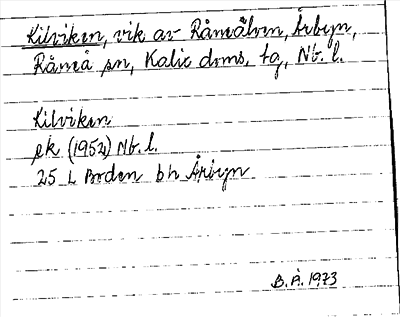 Kilviken, vik av Råneälven, Årbyn,
Råneå sn, Kalix doms. tg, Nb. l.
Kilviken
ek (1952) Nb. l.
25 L Boden bh Årbyn
B. Å. 1973